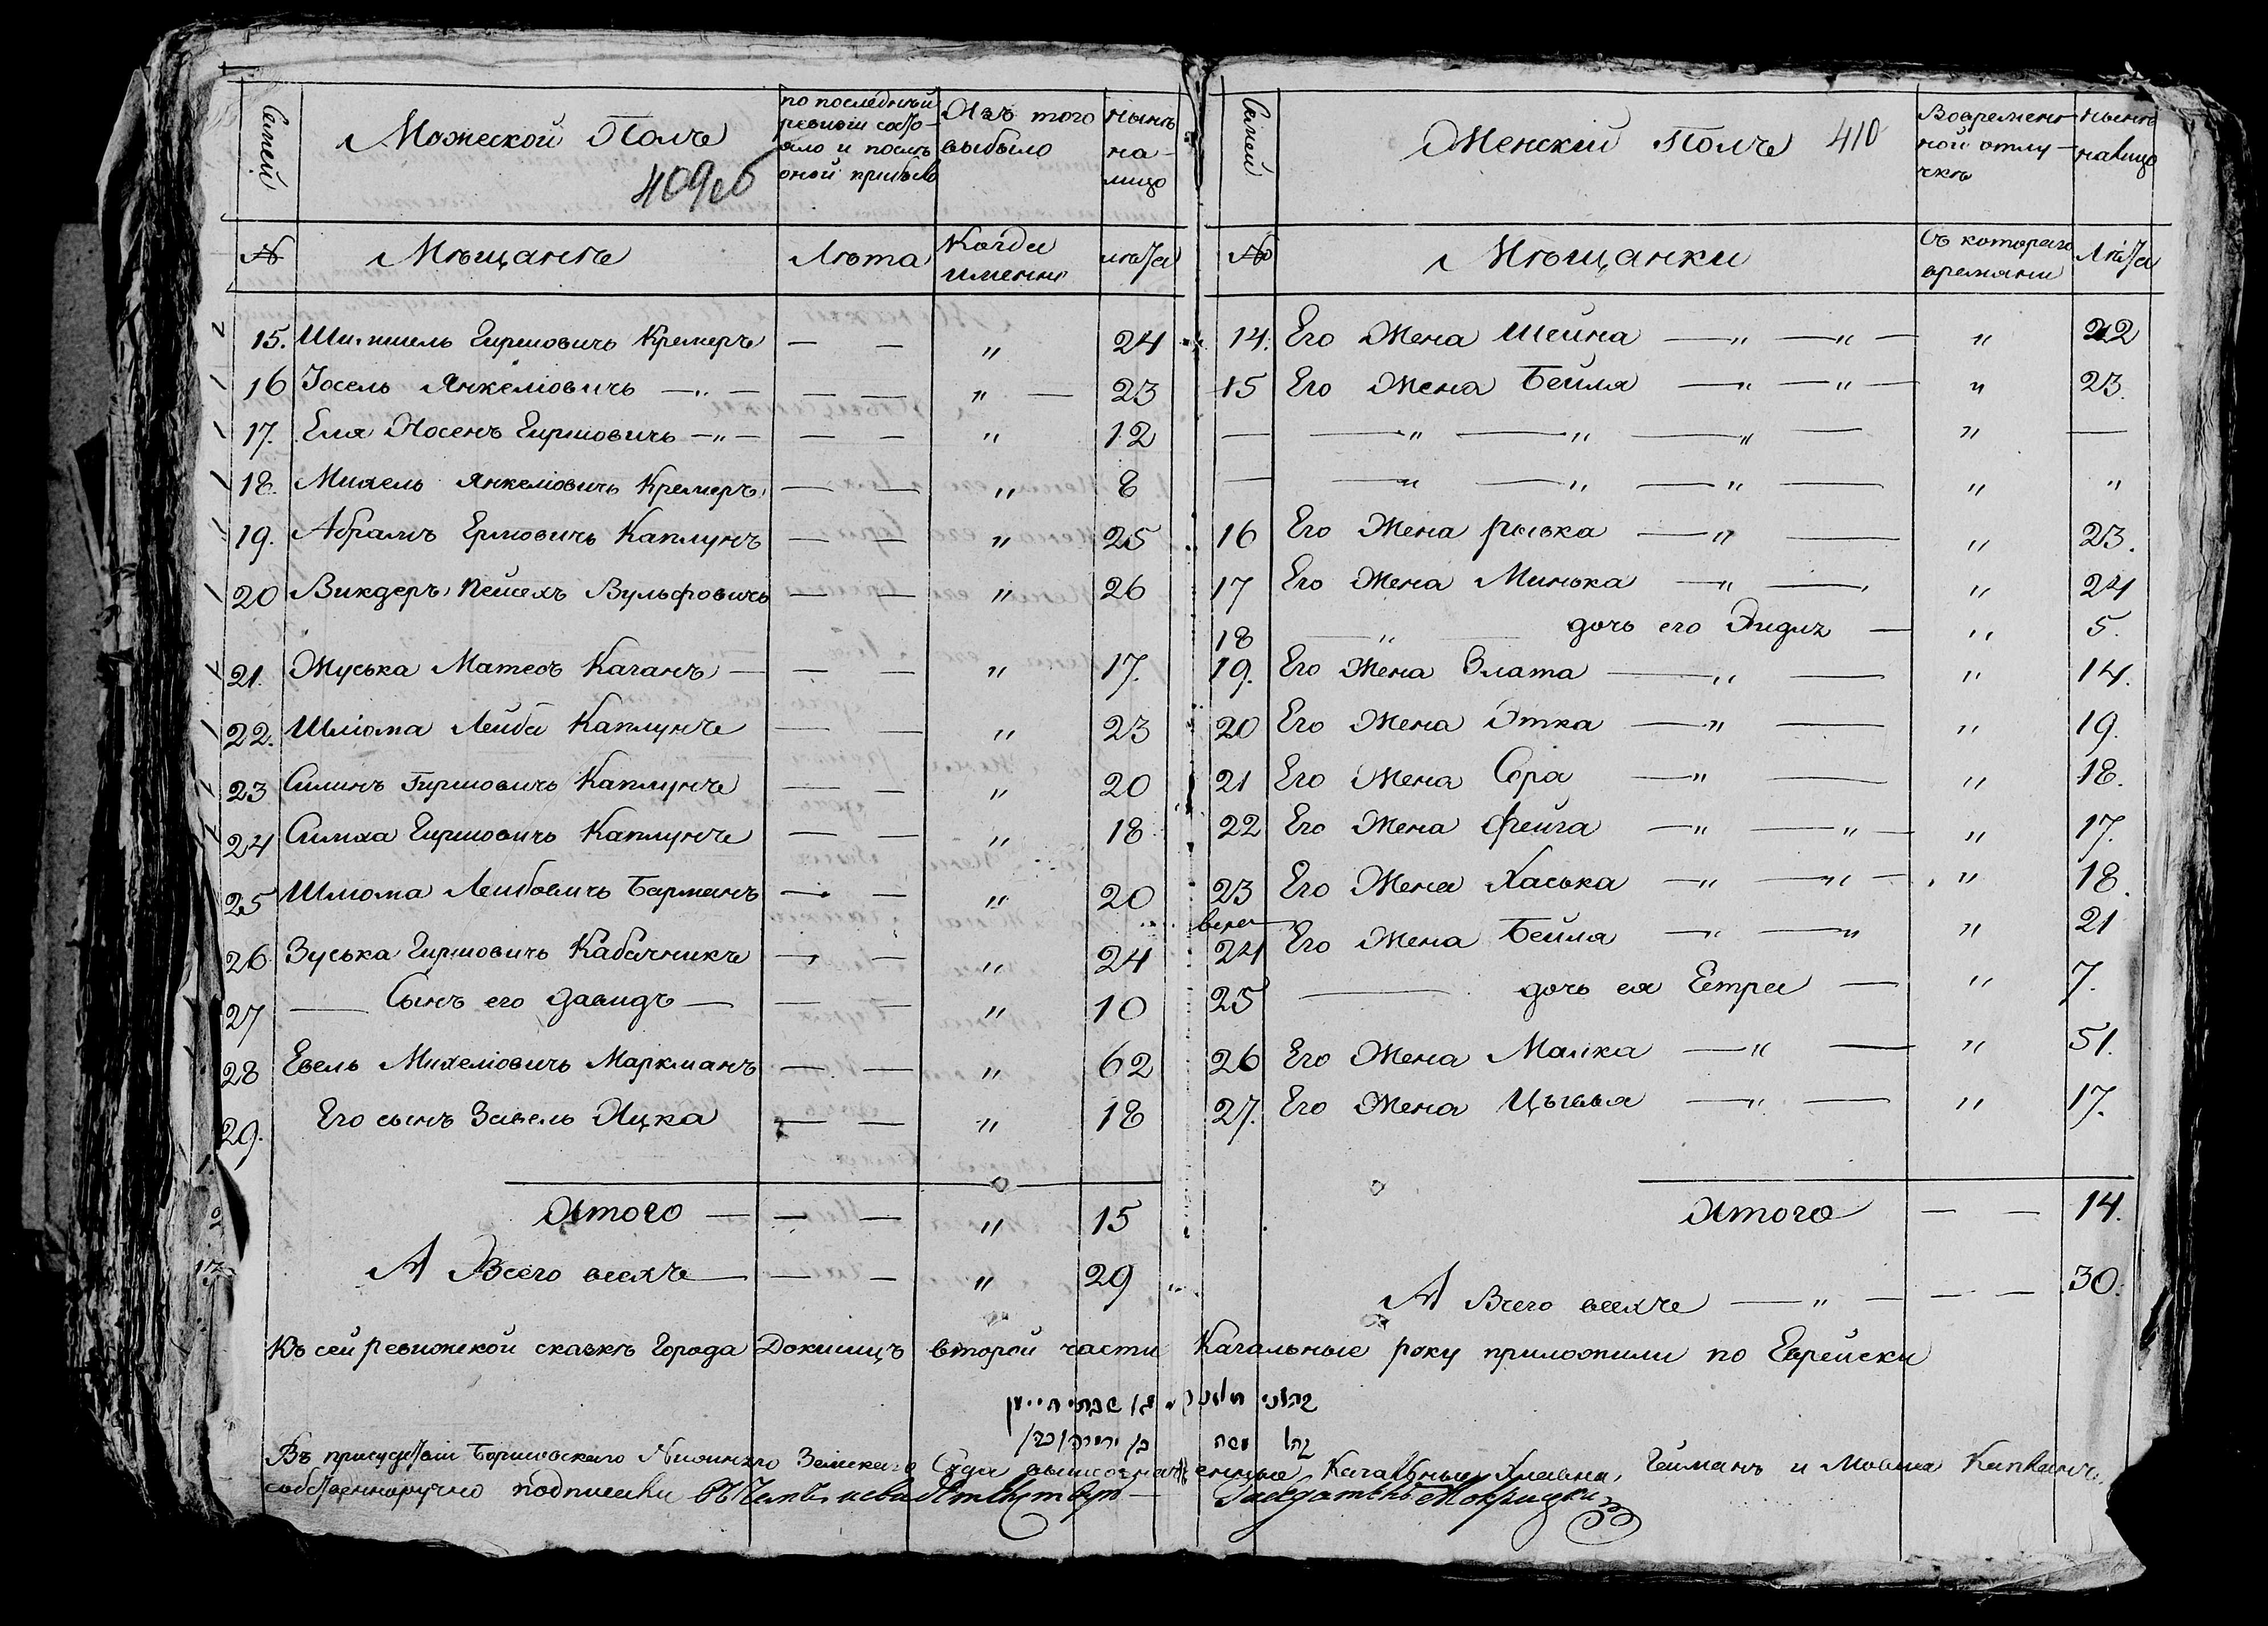 Семей
Можеской Полъ
409об
по последней
ревизии состо-
яло и после
оной прибыло
Изъ того
выбыло
нынѣ
на-
лицо
№
Мѣщанъ
Лѣта
Когда
именно
лѣта
15. Шимшель Гиршовичъ Кремеръ — — " 24
16 Іосель Янкеліовичъ —"— — — " — 23
17. Еля Носенъ Гиршовичъ —"— — — " 12
18. Михель Янкеліовичъ Кремеръ — — " 8
19. Абрамъ Ерміовичъ Каплунъ — — " 25
20 Викдеръ Пейсехъ Вульфовичъ — — " 26
21. Жуська Матесъ Каганъ — — — " 17.
22. Шліома Лейба Каплунъ — — " 23
23 Симинъ Гиршовичъ Каплунъ — — " 20
24 Симха Гиршовичъ Каплунъ — — " 18
25 Шліома Лейбовичъ Барманъ — — " 20
26 Зуська Гиршовичъ Кабачникъ — — " 24
27 — Сынъ его Давидъ — — — " 10
28 Евель Михеліовичъ Маркманъ — — " 62
29. Его сынъ Завель Ицка — — " 18
Итого — — — " 15
А Всего всехъ — — — " 29
Семей
Женскій Полъ 410
Вовремен-
ной отлу-
чкѣ
нынѣ
налицо
№
Мѣщанки
Съ котораго
времяни
Лѣта
14. Его Жена Шейна —"—"— " 22
15 Его Жена Бейля —"—"— " 23.
— —"—"—"— " —
— —"—"—"— " "
16 Его Жена рыська —" — " 23.
17 Его Жена Минька —" — " 24
18 —"— дочь его Эидля — " 5.
19. Его Жена Злата —" — " 14.
20 Его Жена Этка —" — " 19.
21 Его Жена Сора —" — " 18.
22 Его Жена Фейга —" —"— " 17.
23 Его Жена Хаська —" —"— " 18.
24 Его Жена Бейля —" —" " 21
25 — дочь ея Естра — " 7.
26 Его Жена Малка —" — " 51.
27. Его Жена Цывья —" — " 17.
Итого — — 14.
А Всего всехъ —"— — — 30.
Къ сей ревижской сказкѣ Города Докшицъ второй части Кагальные року приложили по Еврейски
Въ присудствіи Борисовскаго Нижняго Земскаго Суда вышеозначенные Кагальные Хлавна, Гейманъ и Мовша Капланъ
собственноручно подписали въ чемъ и свидетельствую Заседатель Мокрицки